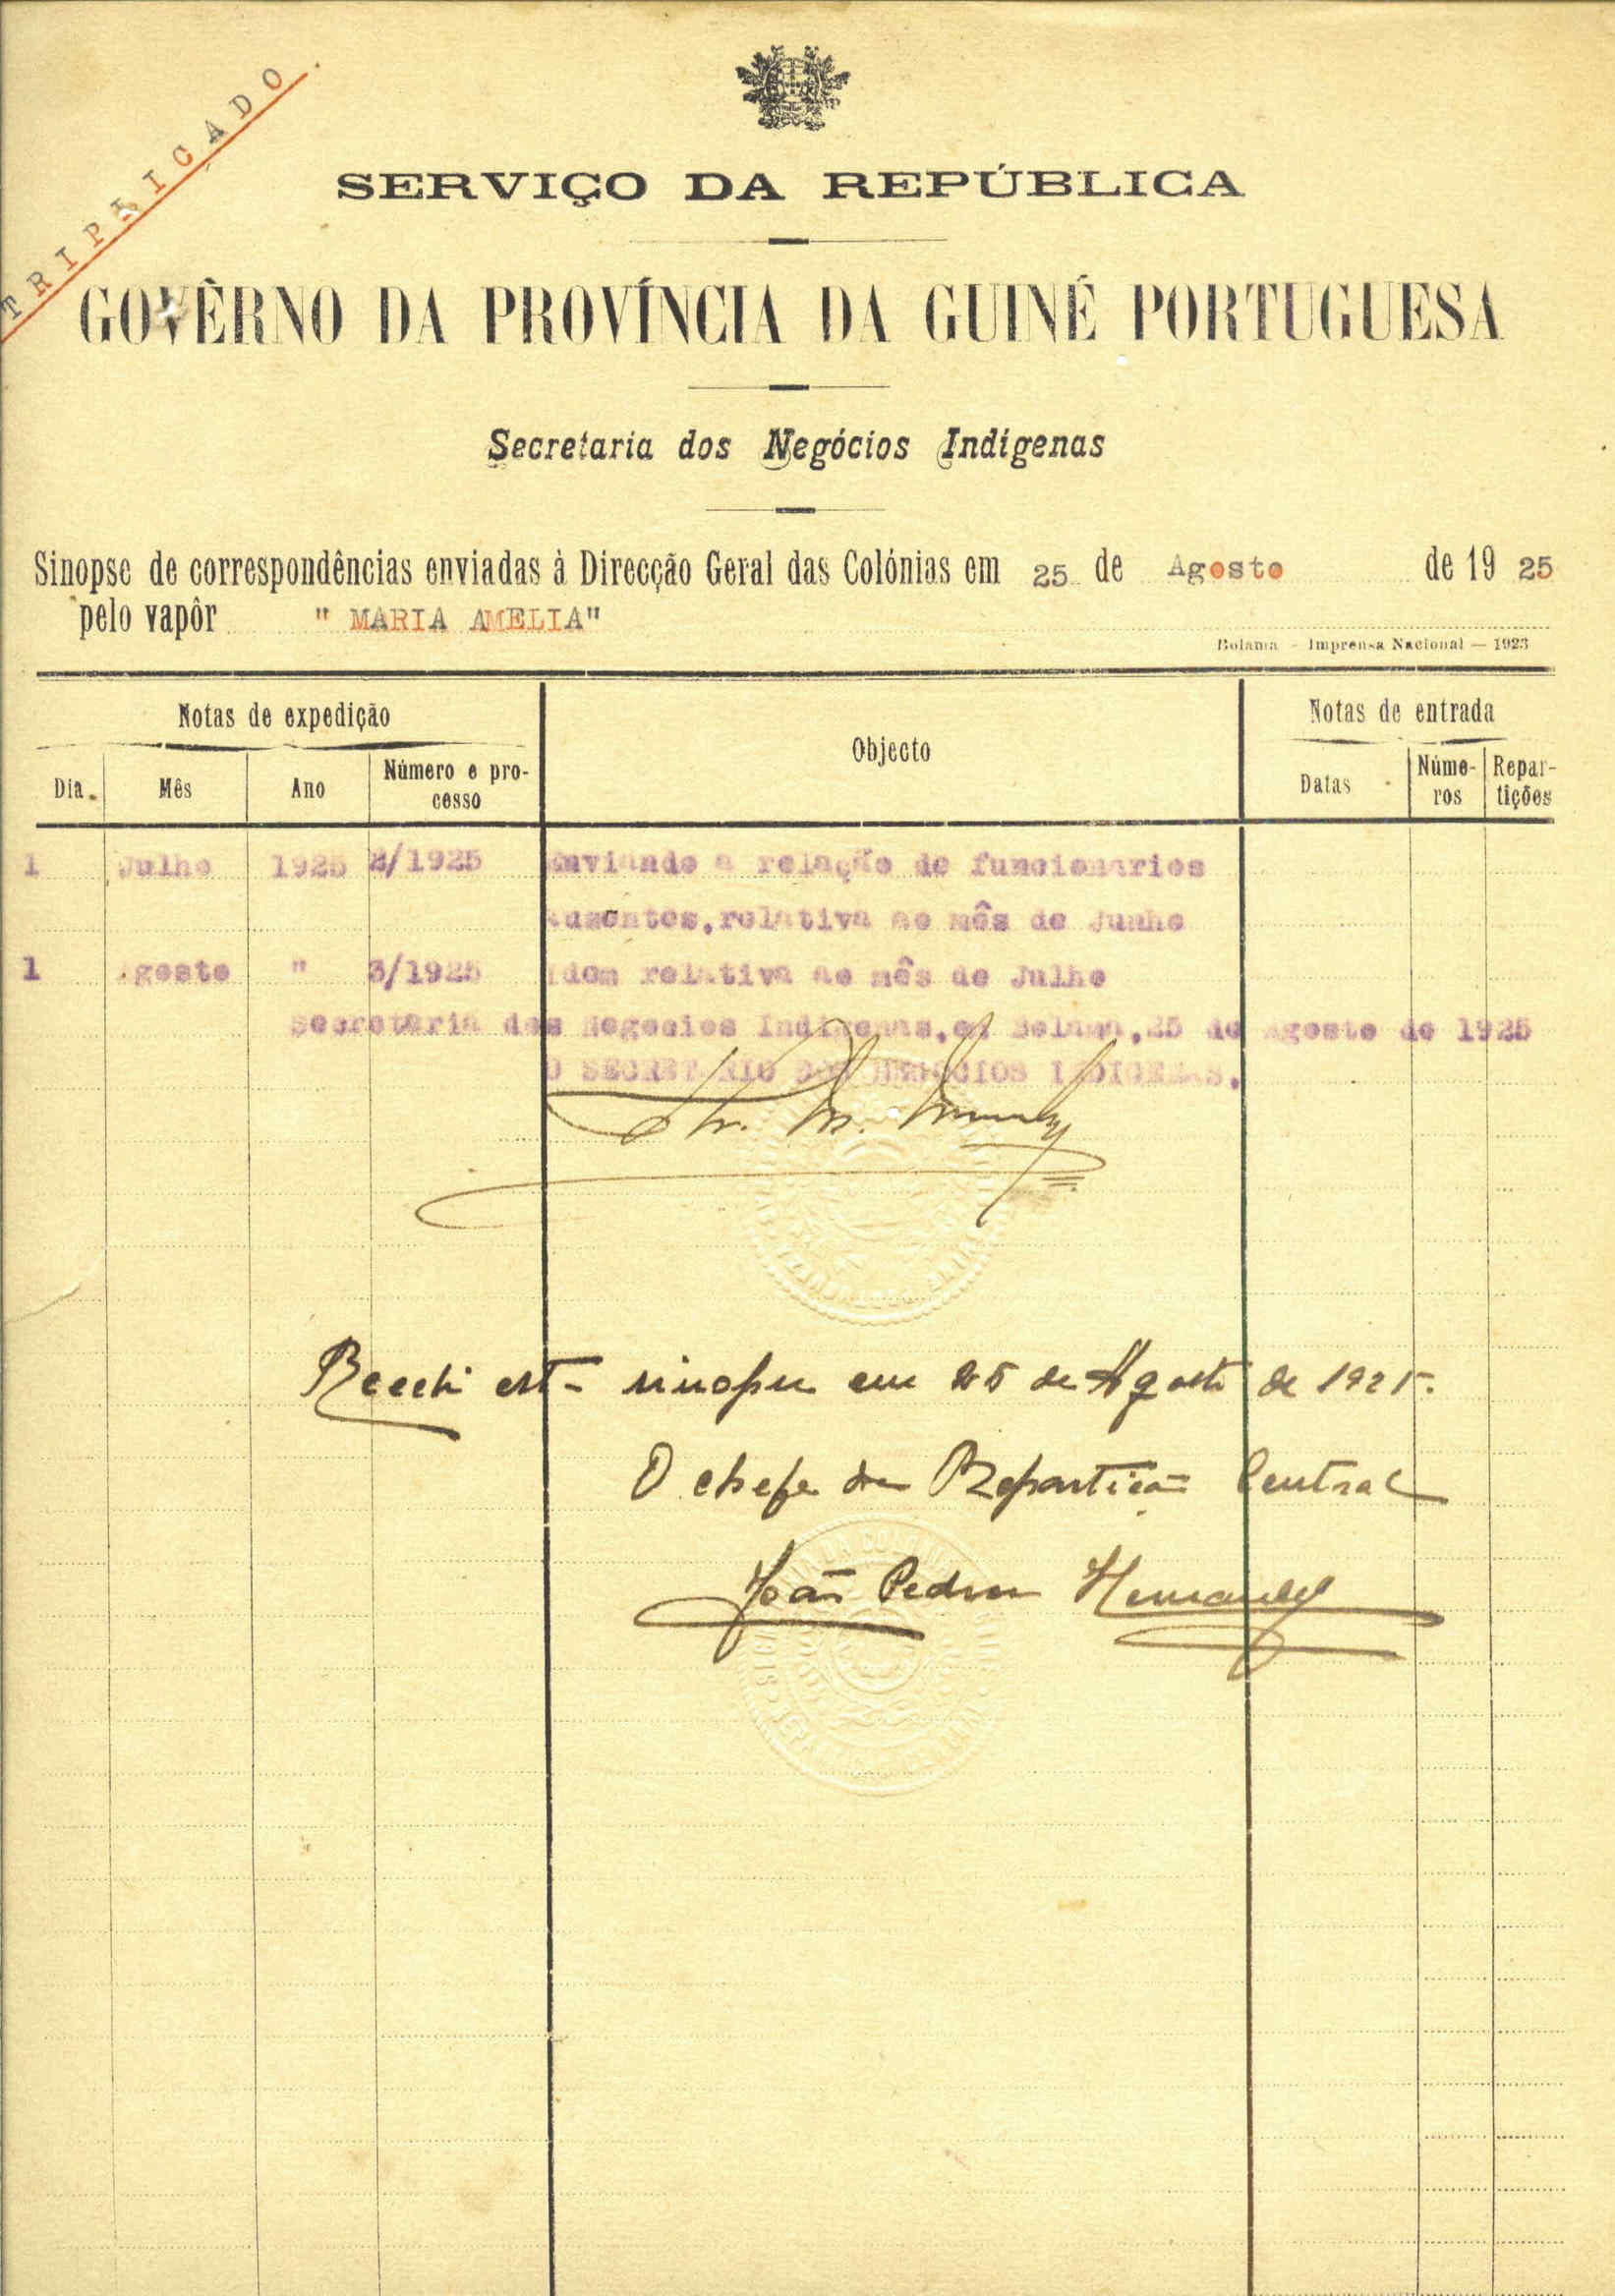 TRIPLICADO.
SERVIÇO DA REPÚBLICA
GOVÊRNO DA PROVÍNCIA DA GUINÉ PORTUGUESA
Secretaria dos Negócios Indígenas
Sinopse de correspondências enviadas à Direcção Geral das Colónias em 25 de Agosto de 1925
pelo vapôr " MARIA AMELIA"
Bolama - Imprensa Nacional — 1923
Notas de expedição
Objecto
Notas de entrada
Dia.
Mês
Ano
Número e pro-
cesso
Datas
Núme-
ros
Repar-
tições
1 Julho 1925 2/1925 Enviando a relação de funcionarios
ausentes,relativa ao mês de Junho
1 Agosto " 3/1925 Idem relativa ao mês de Julho
Secretaria dos Negocios Indigenas,em Bolama,25 de Agosto de 1925
O SECRETARIO DOS NEGOCIOS INDIGENAS.
Recebi esta sinopse em 25 de Agosto de 1925.
O chefe da Repartição Central
João Pedro